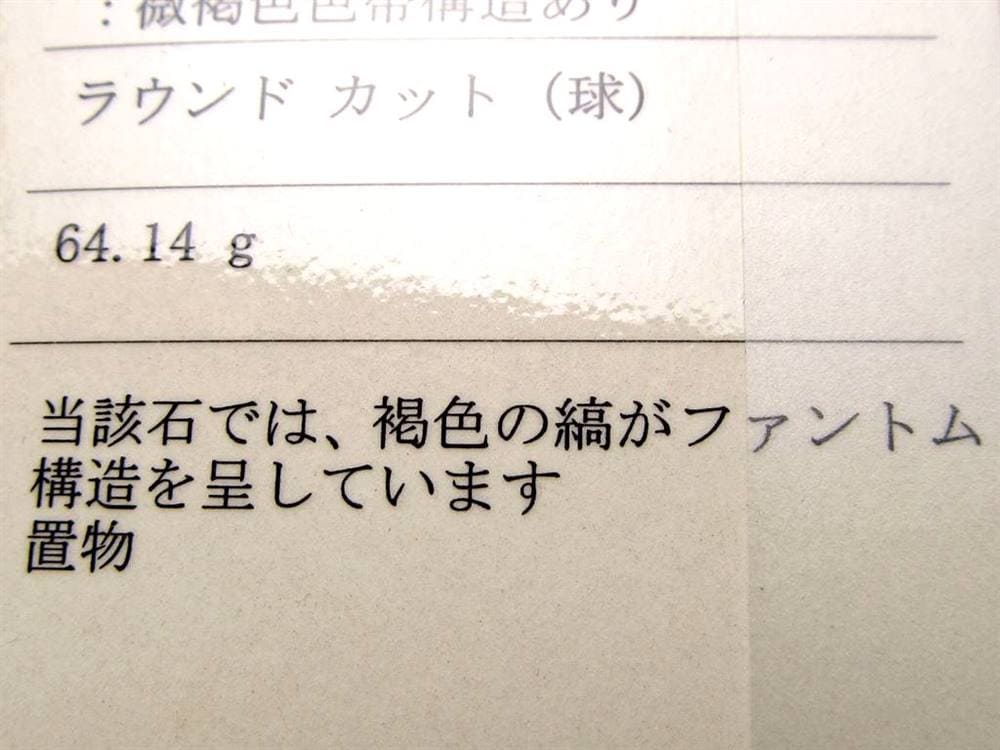 ：微褐色色帯構造あり
ラウンド カット（球）
64.14 g
当該石では、褐色の縞がファントム
構造を呈しています
置物